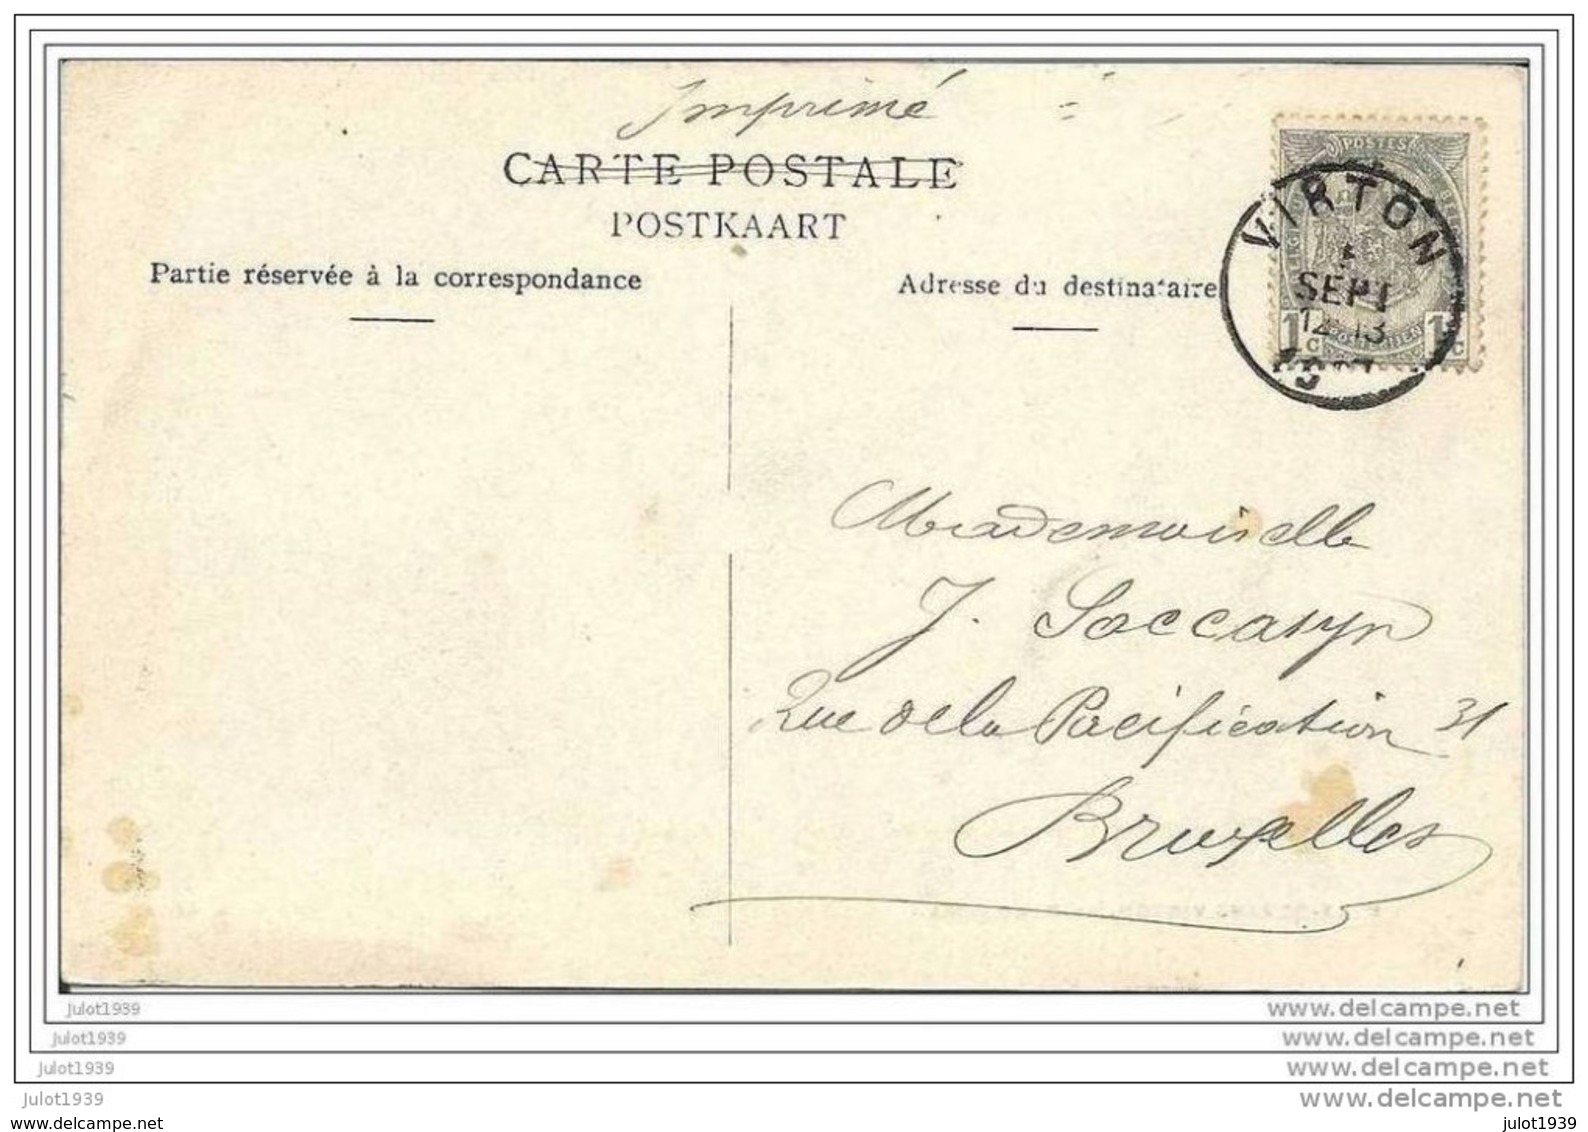 Imprimé
CARTE POSTALE
POSTKAART
Partie réservée à la correspondance
Adresse du destinataire
POSTES
VIRTON
SEPT
12-13
1c 1c
Mademoiselle
J. Saccasyn
Rue de la Pacification 31
Bruxelles
julot1939 www.delcampe.net
julot1939 www.delcampe.net
julot1939 www.delcampe.net
julot1939 www.delcampe.net
www.delcampe.net julot1939